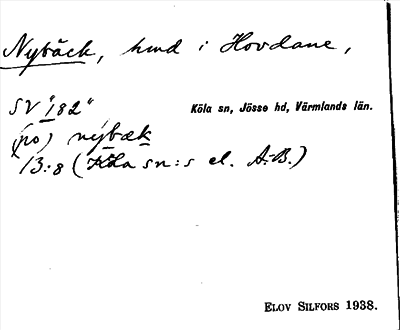 Nybäck, hmd i Hovdane,
SV "182"
Köla sn, Jösse hd, Värmlands län.
(po) nýbæk
13:8 (Köla sn:s el. A.-B.)
ELOV SILFORS 1938.